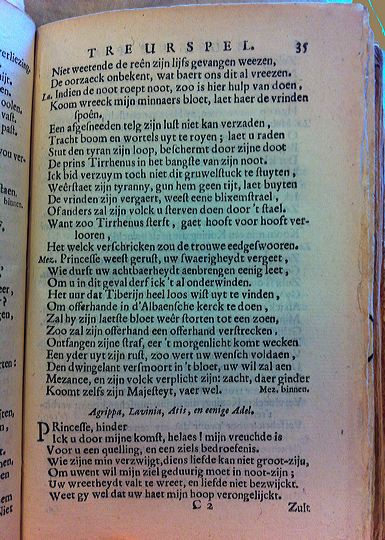 TREURSPEL. 35
Niet weetende de reên zijn lijfs gevangen weezen,
De oorzaeck onbekent, wat baert ons dit al vreezen.
La. Indien de noot roept noot, zoo is hier hulp van doen,
Koom wreeck mijn minnaers bloet, laet haer de vrinden
spoên,
Een afgesneeden telg zijn lust niet kan verzaden,
Tracht boom en wortels uyt te royen; laet u raden
Stut den tyran zijn loop, beschermt door zijne doot
De prins Tirrhenus in het bangste van zijn noot.
Ick bid verzuym toch niet dit gruwelstuck te stuyten,
Weêrstaet zijn tyranny, gun hem geen tijt, laet buyten
De vrinden zijn vergaert, weest eene blixemstrael,
Of anders zal zijn volck u sterven doen door 't stael.
Want zoo Tirrhenus sterft, gaet hooft voor hooft ver-
looren,
Het welck verschricken zou de trouwe eedgeswooren.
Mez. Princesse weest gerust, uw swaerigheydt vergeet,
Wie durft uw achtbaerheydt aenbrengen eenig leet,
Om u in dit geval derf ick 't al onderwinden.
Het uur dat Tiberijn heel loos wist uyt te vinden,
Om offerhande in d'Albaensche kerck te doen,
Zal hy zijn laetste bloet weêr storten tot een zoen,
Zoo zal zijn offerhand een offerhand verstrecken,
Ontfangen zijne straf, eer 't morgenlicht komt wecken
Een yder uyt zijn rust, zoo wert uw wensch voldaen,
Den dwingelant versmoort in 't bloet, uw wil zal aen
Mezance, en zijn volck verplicht zijn: zacht, daer ginder
Koomt zelfs zijn Majesteyt, vaer wel. Mez. binnen.
Agrippa, Lavinia, Atis, en eenige Adel.
PRincesse, hinder
Ick u door mijne komst, helaes! mijn vreuchde is
Voor u een quelling, en een ziels bedroefenis.
Wie zijne min verzwijgt, diens liefde kan niet groot-zijn,
Om uwent wil mijn ziel geduurig moet in noot-zijn;
Uw wreetheydt valt te wreet, en liefde niet bezwijckt.
Weet gy wel dat uw haet mijn hoop verongelijckt.
C 2 Zult